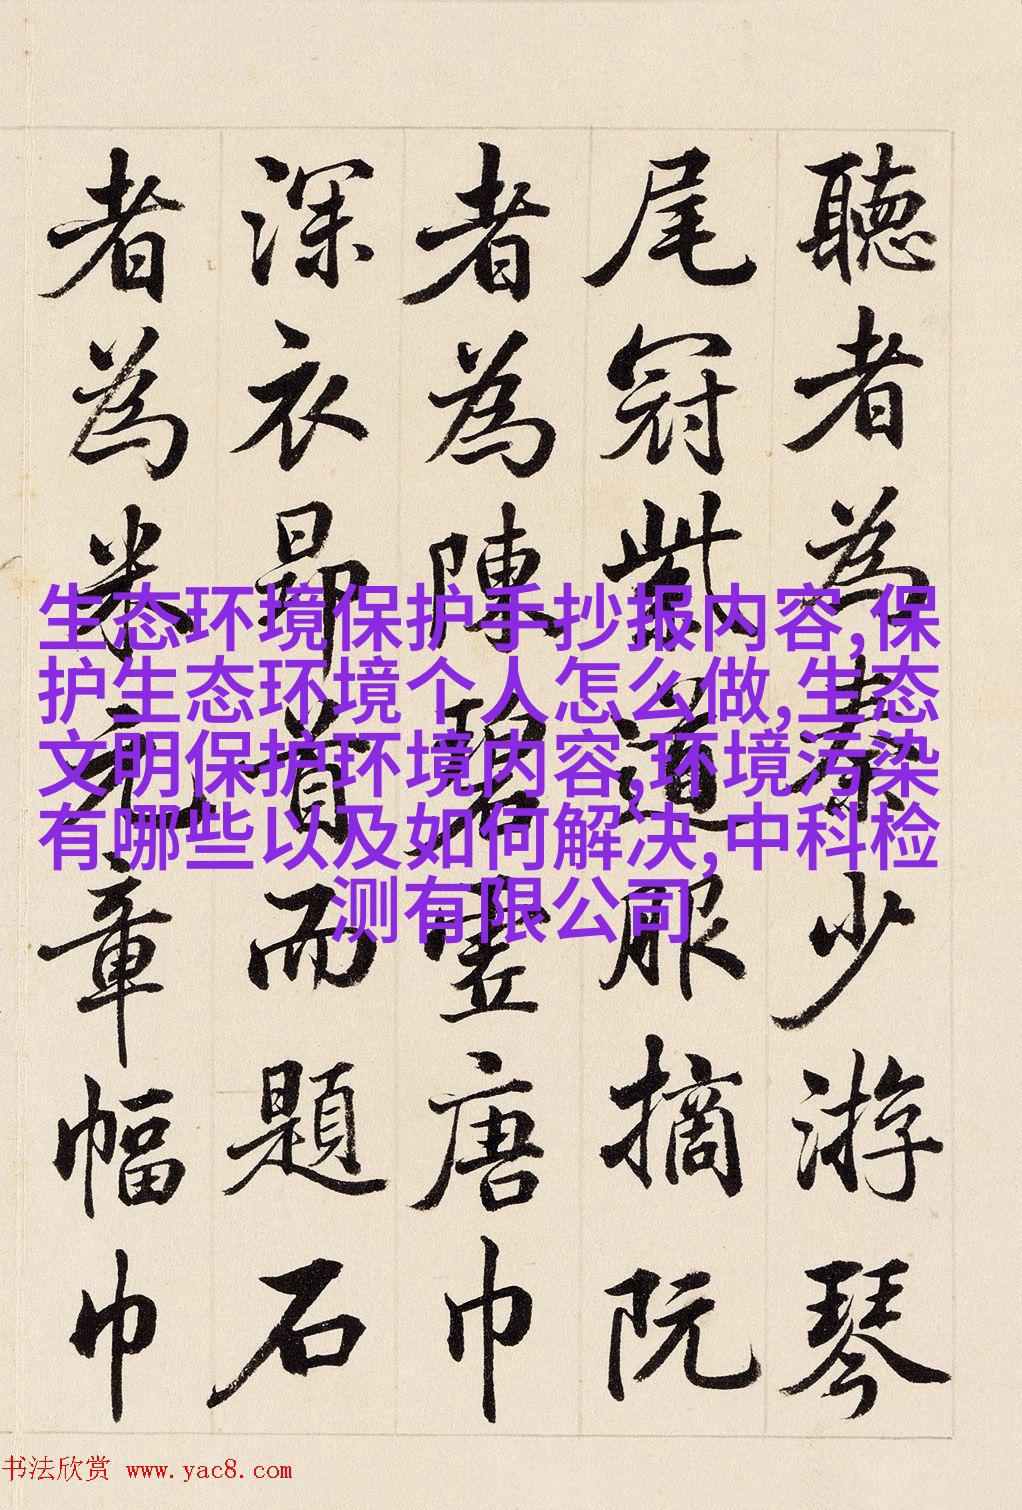 聽者為秦少游琴
尾冠紫道服摘阮
者為陳碧虛唐巾
深衣昂首而題石
者為米元章幅巾
生态环境保护手抄报内容,保
护生态环境个人怎么做,生态
文明保护环境内容,环境污染
有哪些以及如何解决,中科检
测有限公司
书法欣赏 www.yac8.com